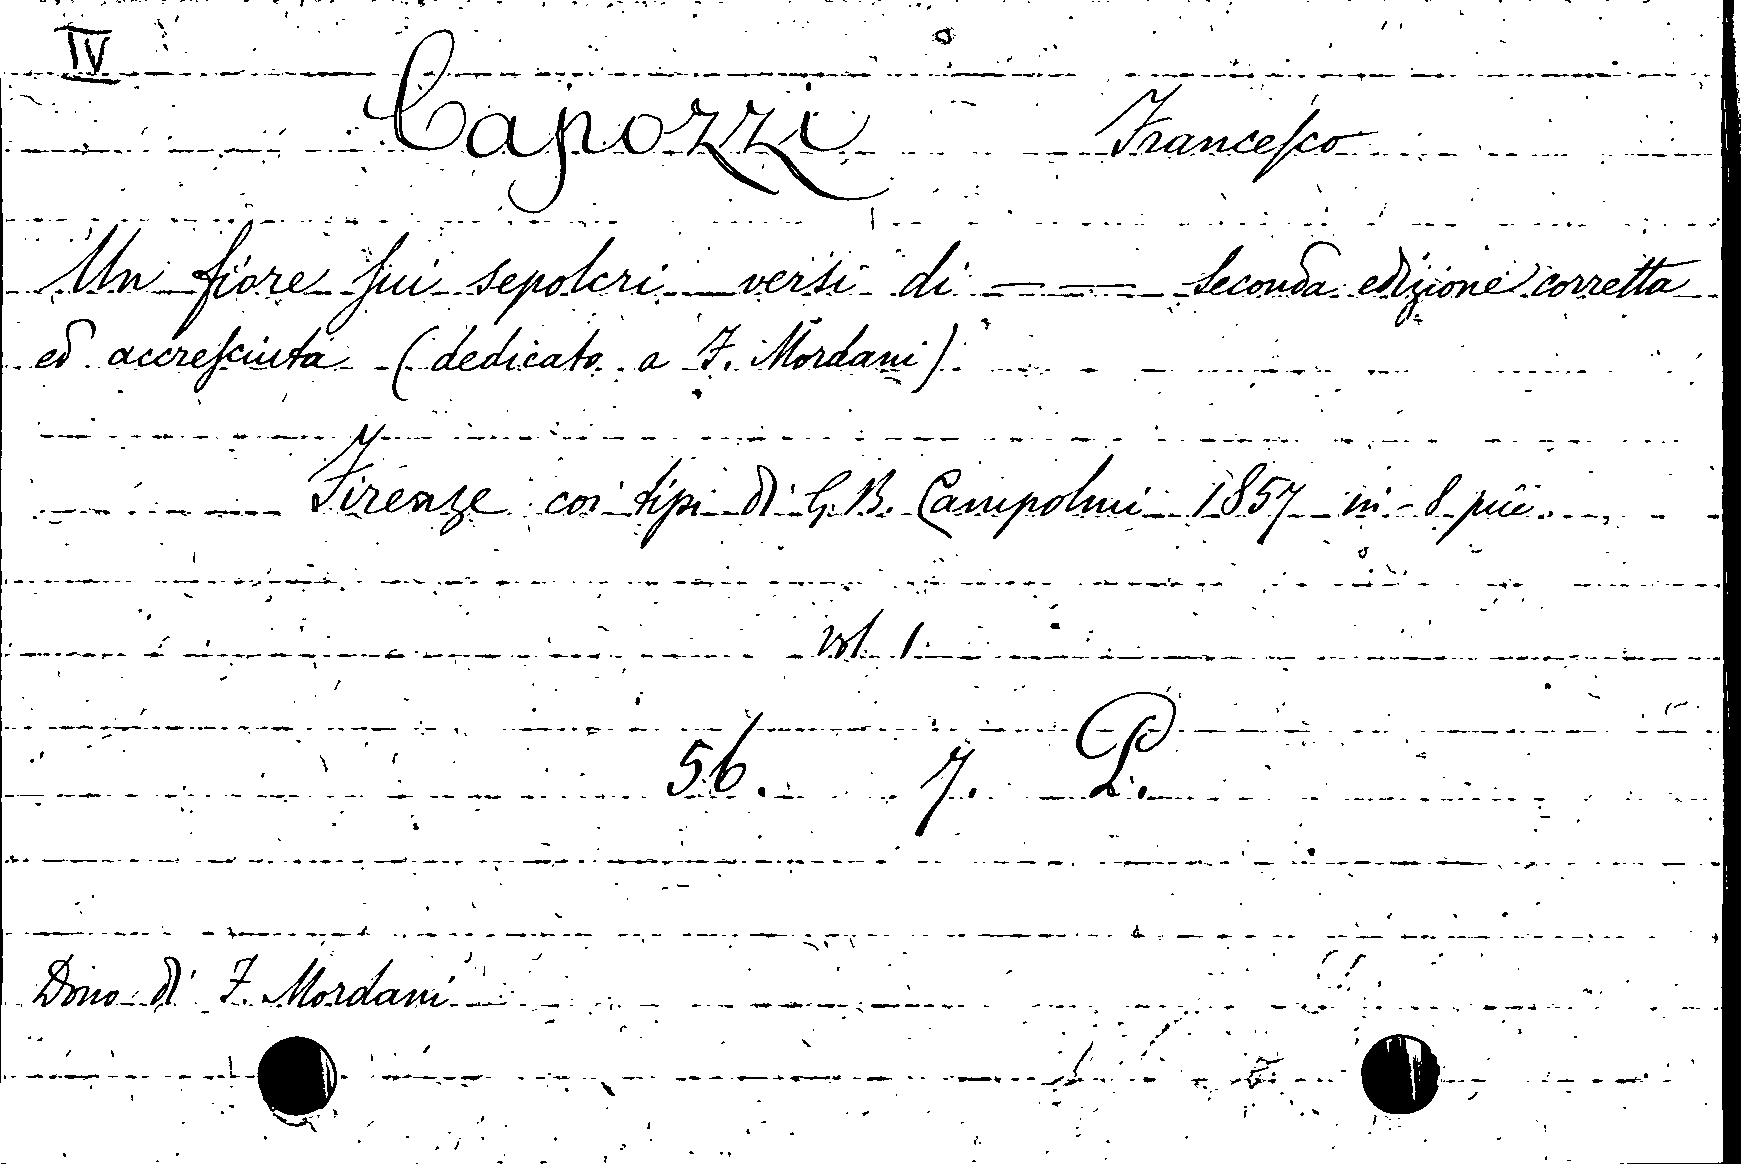 IV
Capozzi Francesco
Un fiore sui sepolcri versi di — — seconda edizione corretta
ed accresciuta (dedicato a F. Mordani)
Firenze coi tipi di G. B. Campolmi 1857 in-8 pic.
vol. 1.
56. 7. P.
Dono di F. Mordani